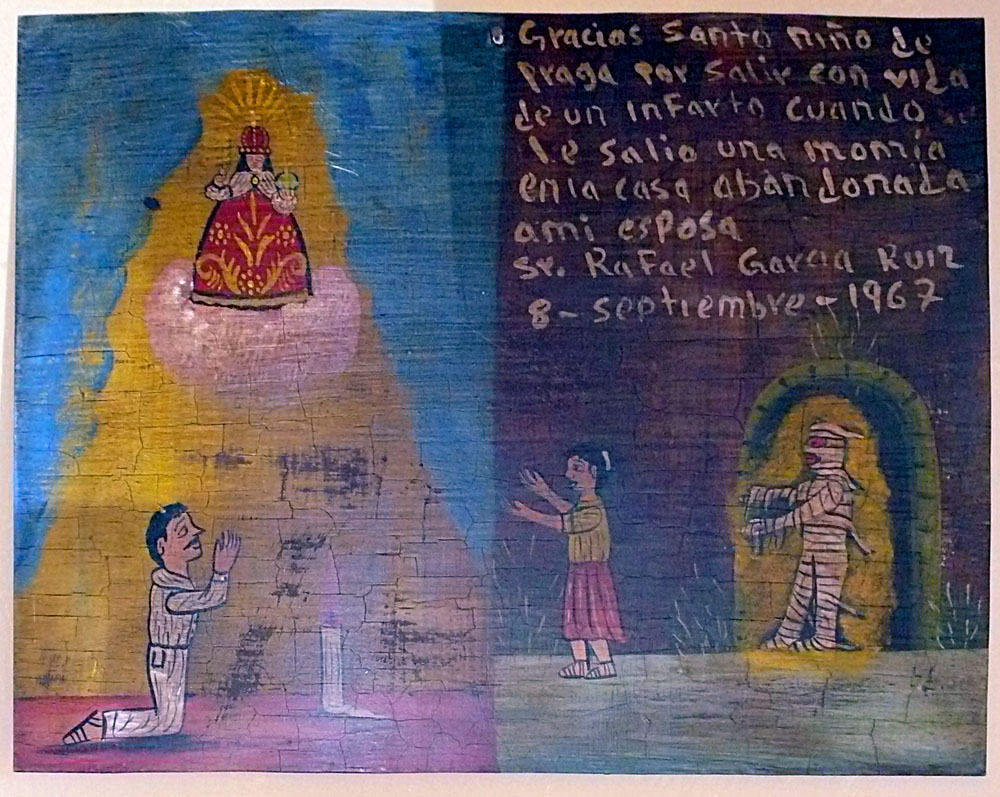 Gracias Santo niño de
praga por salir con vida
de un infarto cuando
le salio una momia
en la casa abandonada
ami esposa
sr. Rafael Garcia Ruiz
8 - septiembre - 1967